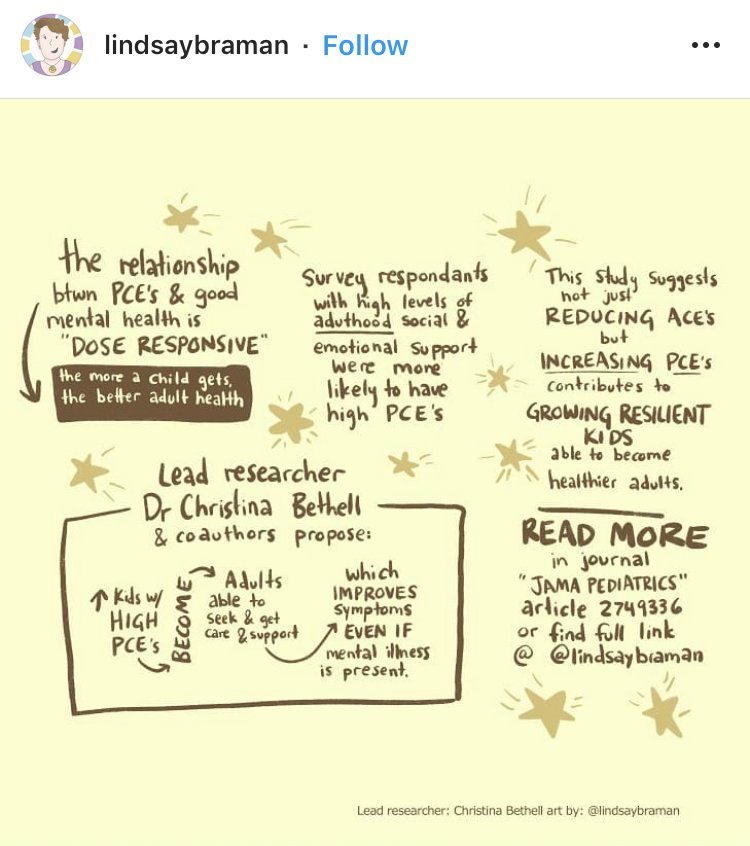 lindsaybraman · Follow
the relationship
btwn PCE's & good
mental health is
"DOSE RESPONSIVE"
the more a child gets,
the better adult health
Survey respondants
with high levels of
aduthood social &
emotional support
were more
likely to have
high PCE's
This study suggests
not just
REDUCING ACE's
but
INCREASING PCE's
contributes to
GROWING RESILIENT
KIDS
able to become
healthier adults.
Lead researcher
Dr Christina Bethell
& coauthors propose:
↑ Kids w/
HIGH
PCE's
BECOME
Adults
able to
seek & get
care & support
which
IMPROVES
symptoms
EVEN IF
mental illness
is present.
READ MORE
in journal
"JAMA PEDIATRICS"
article 2749336
or find full link
@ @lindsaybraman
Lead researcher: Christina Bethell art by: @lindsaybraman